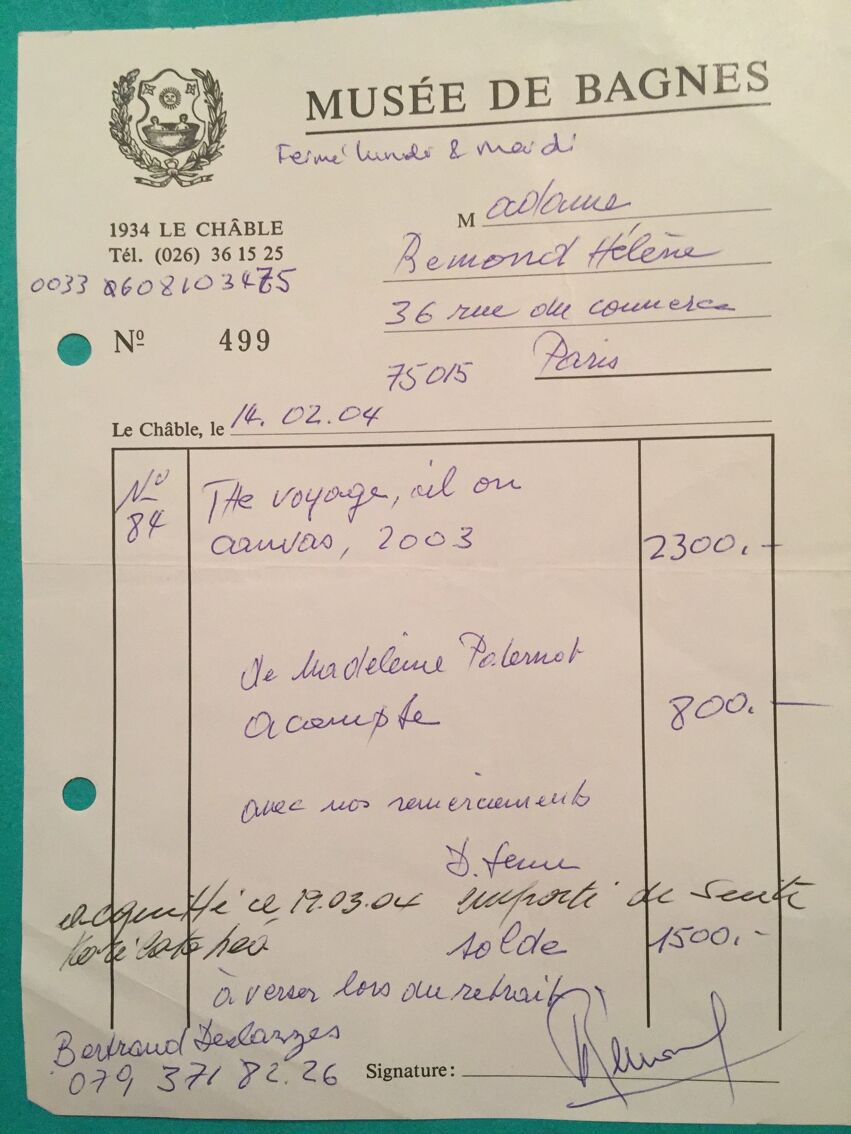 MUSÉE DE BAGNES
Fermé lundi & mardi
1934 LE CHÂBLE
Tél. (026) 36 15 25
0033 0608103475
Nº 499
Madame
Remond Hélène
36 rue du commerce
75015 Paris
Le Châble, le 14.02.04
Nº 84
THe voyage, oil on
canvas, 2003 2300.-
de Madeleine Paternot
acompte 800.-
avec nos remerciements
acquitté ce 19.03.04 emporté de suite
solde 1500.-
à verser lors du retrait
Bertrand Deslarzes
079, 371 82.26
Signature: